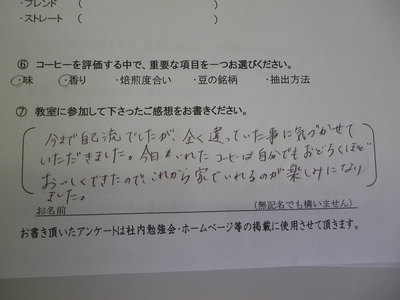 ・ブレンド (
・ストレート (
⑥ コーヒーを評価する中で、重要な項目を一つお選びください。
・味 ・香り ・焙煎度合い ・豆の銘柄 ・抽出方法
⑦ 教室に参加して下さったご感想をお書きください。
今まで自己流でしたが、全く違っていた事に気づかせて
いただきました。今日いれたコーヒーは自分でもおどろくほど
おいしくできたので、これから家でいれるのが楽しみになり
ました。
お名前 (無記名でも構いません)
お書き頂いたアンケートは社内勉強会・ホームページ等の掲載に使用させて頂きます。